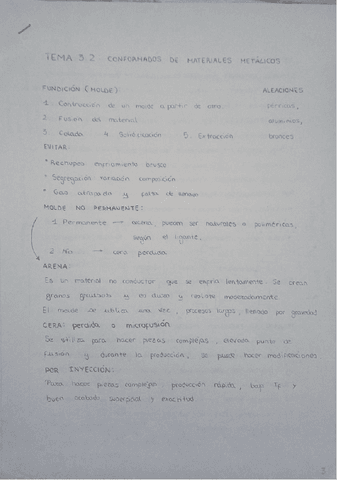 TEMA 3.2 CONFORMADOS DE MATERIALES METÁLICOS
FUNDICIÓN (MOLDE) ALEACIONES
1. Construcción de un molde a partir de otro. férricas,
2. Fusión del material aluminios,
3. Colada 4. Solidificación 5. Extracción bronces
EVITAR:
* Rechupes enfriamiento brusco
* Segregación variación composición
* Gas utilizado y
MOLDE NO PERMANENTE:
1. Permanente → pueden ser naturales o poliméricas,
según el ligante.
2. No → cera perdida
ARENA:
Es un material no conductor que se enfría lentamente. Se crean
granos grandes y es duro y resiste moderadamente.
El molde se utiliza una vez, procesos largos, limitado por gravedad
CERA: perdida o microfusión
Se utiliza para hacer piezas complejas, elevado punto de
fusión y durante la producción, se puede hacer modificaciones
POR INYECCIÓN:
Para hacer piezas complejas producción rápida, bajo Tf y
buen acabado superficial y exactitud.